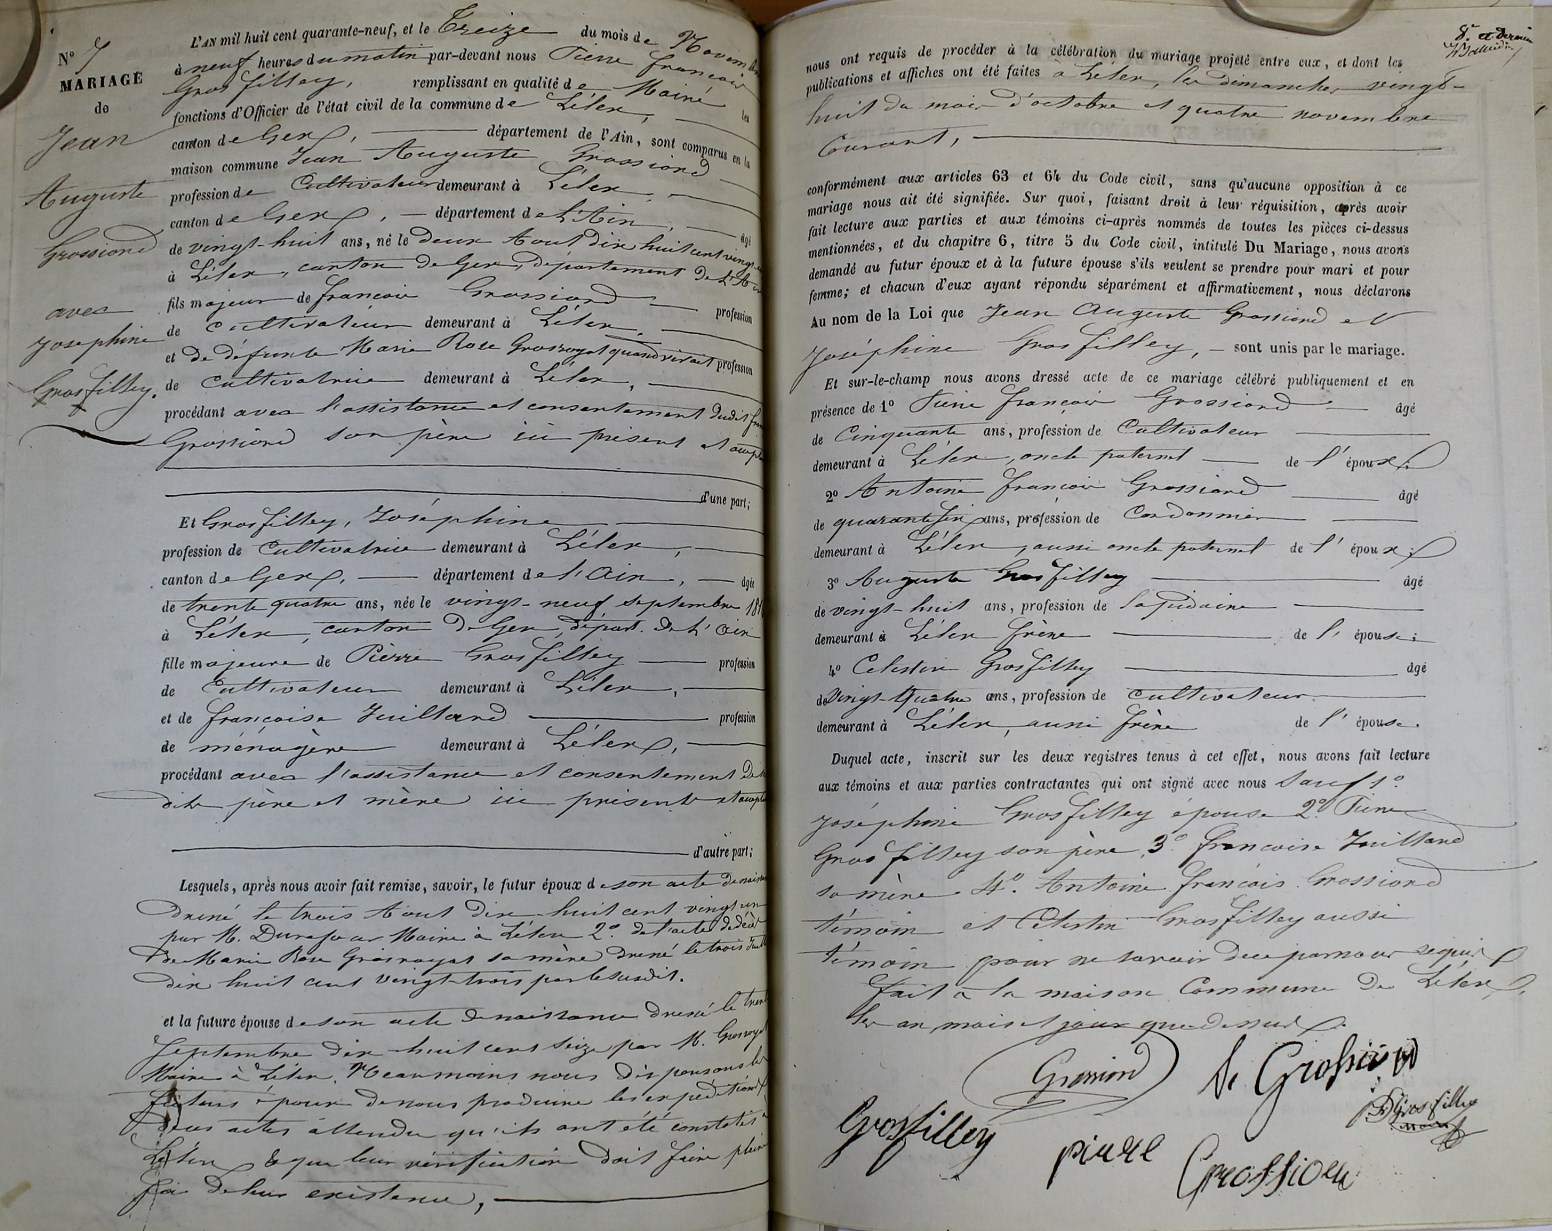 N° 7
MARIAGE
de
Jean
Auguste
Grossiord
avec
Joséphine
Grosfilley.
L'AN mil huit cent quarante-neuf, et le Treize du mois de Novembre
à neuf heures du matin par-devant nous Pierre françois
Grosfilley, remplissant en qualité de Maire les
fonctions d'Officier de l'état civil de la commune de Lélex,
canton de Gex, département de l'Ain, sont comparus en la
maison commune Jean Auguste Grossiord
profession de Cultivateur demeurant à Lélex,
canton de Gex, département de L'Ain, âgé
de vingt-huit ans, né le deux Aout dix huit cent vingt
à Lélex, canton de Gex, département de L'Ain
fils majeur de françois Grossiord profession
de cultivateur demeurant à Lélex,
et de défunte Marie Rose Grosroyat quand vivait profession
de cultivatrice demeurant à Lélex,
procédant avec l'assistance et consentement dudit
Grossiord son père ici présent et
d'une part;
Et Grosfilley, Joséphine
profession de cultivatrice demeurant à Lélex,
canton de Gex, département de l'Ain, âgée
de trente quatre ans, née le vingt-neuf septembre 181
à Lélex, canton de Gex, départ. de L'Ain
fille majeure de Pièrre Grosfilley profession
de Cultivateur demeurant à Lélex,
et de françoise Juilland profession
de ménagère demeurant à Lélex,
procédant avec l'assistance et consentement de
dits père et mère ici présents et
d'autre part;
Lesquels, après nous avoir fait remise, savoir, le futur époux de son acte de
dressé le trois Aout dix-huit cent vingt un
par M. Maire à Lélex 2° de l'acte de décès
de Marie Rose Grosroyat sa mère dressé le trois
dix huit cent vingt-trois par le susdit.
et la future épouse de son acte de naissance dressé le
septembre dix-huit cent seize par M. Grosroyat
Maire à Lélex. Néanmoins nous dispensons les
futurs époux de nous produire les expéditions
actes attendu qu'ils ont été constatés à
Lélex & que leur vérification doit faire pleine
foi de leur existence,
8e. et dernier
nous ont requis de procéder à la célébration du mariage projeté entre eux, et dont les
publications et affiches ont été faites à Lélex, les dimanches vingt-
huit du mois d'octobre et quatre novembre
Courant,
conformément aux articles 63 et 64 du Code civil, sans qu'aucune opposition à ce
mariage nous ait été signifiée. Sur quoi, faisant droit à leur réquisition, après avoir
fait lecture aux parties et aux témoins ci-après nommés de toutes les pièces ci-dessus
mentionnées, et du chapitre 6, titre 5 du Code civil, intitulé Du Mariage, nous avons
demandé au futur époux et à la future épouse s'ils veulent se prendre pour mari et pour
femme; et chacun d'eux ayant répondu séparément et affirmativement, nous déclarons
Au nom de la Loi que Jean Auguste Grossiord et
Joséphine Grosfilley, sont unis par le mariage.
Et sur-le-champ nous avons dressé acte de ce mariage célébré publiquement et en
présence de 1° Pierre françois Grossiord âgé
de Cinquante ans, profession de Cultivateur
demeurant à Lélex, oncle paternel de l'époux;
2° Antoine françois Grossiord âgé
de quarante six ans, profession de Cordonnier
demeurant à Lélex, aussi oncle paternel de l'époux;
3° Auguste Grosfilley âgé
de vingt-huit ans, profession de lapidaire
demeurant à Lélex frère de l'épouse;
4° Célestin Grosfilley âgé
de Vingt-Quatre ans, profession de cultivateur
demeurant à Lélex, aussi frère de l'épouse.
Duquel acte, inscrit sur les deux registres tenus à cet effet, nous avons fait lecture
aux témoins et aux parties contractantes qui ont signé avec nous Sauf 1°
Joséphine Grosfilley épouse 2° Pierre
Grosfilley son père, 3° francoise Juilland
sa mère 4°. Antoine francois Grossiord
témoin et Célestin Grosfilley aussi
témoin pour ne savoir de ce par nous requis
fait à la maison Commune de Lélex,
les an, mois et jour que dessus.
Grossiord
A. Grossiord
Grosfilley
pierre
Grossiord
Grosfilley
maire